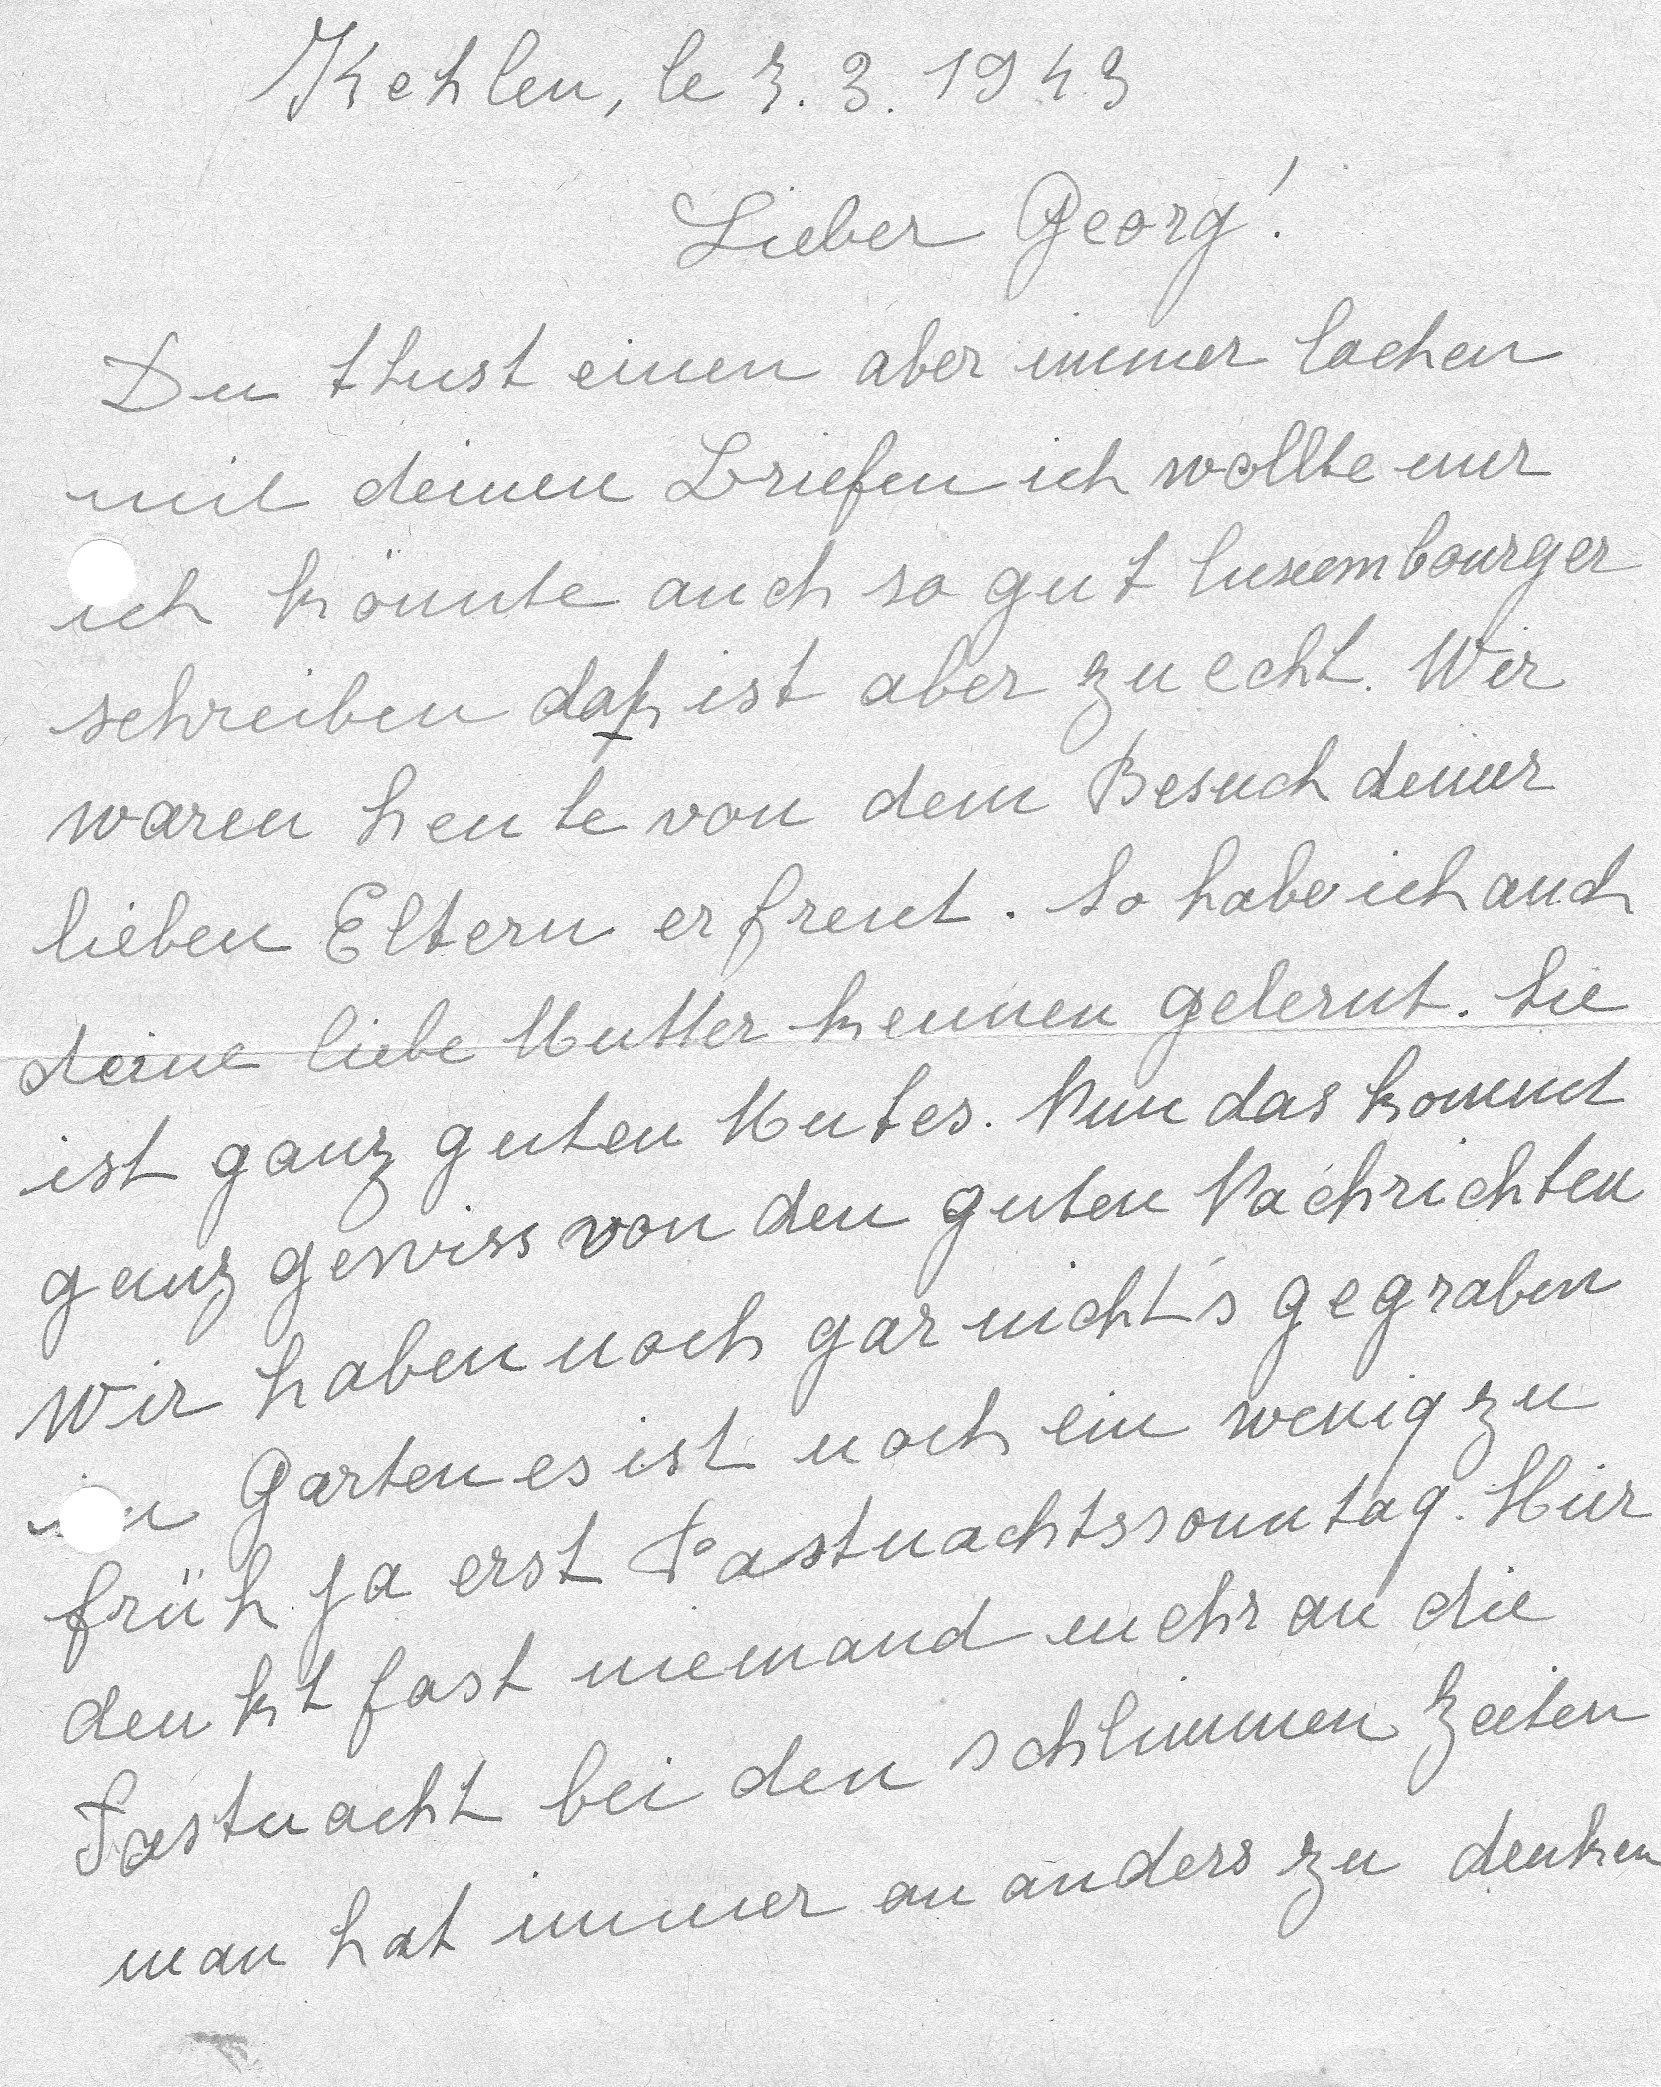 Kehlen, le 3. 3. 1943
Lieber Georg!
Du thust einen aber immer lachen
mit deinen Briefen ich wollte nur
ich könnte auch so gut luxembourger
schreiben daß ist aber zu echt. Wir
waren heute von dem Besuch deiner
lieben Eltern erfreut. So habe ich auch
deine liebe Mutter kennen gelernt. Sie
ist ganz guten Mutes. Nun das kommt
ganz gewiss von den guten Nachrichten
Wir haben noch gar nicht's gegraben
in Garten es ist noch ein wenig zu
früh ja erst Fastnachtssonntag. Hier
denkt fast niemand mehr an die
Fastnacht bei den schlimmen Zeiten
man hat immer an anders zu denken